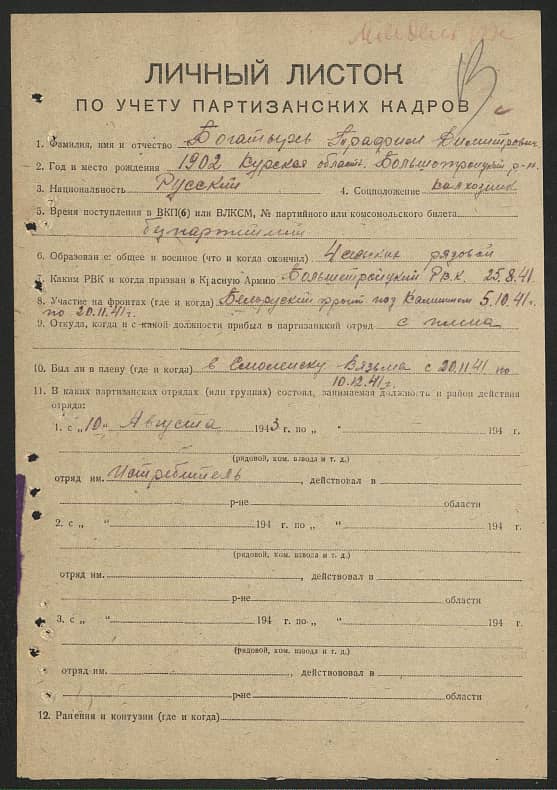 ЛИЧНЫЙ ЛИСТОК
ПО УЧЕТУ ПАРТИЗАНСКИХ КАДРОВ
1. Фамилия, имя и отчество Богатырь Трафрил Димитрович
2. Год и место рождения 1902 Курская область Большотроицкий р-н.
3. Национальность Русский 4. Соцположение
5. Время поступления в ВКП(б) или ВЛКСМ, № партийного или комсомольского билета
безпартийный
6. Образование: общее и военное (что и когда окончил) рядовой
7. Каким РВК и когда призван в Красную Армию Большетройцкий Р.В.К. 25.8.41
8. Участие на фронтах (где и когда) Белоруский фронт под Калинином 5.10.41г.
по 20.11.41г.
9. Откуда, когда и с какой должности прибыл в партизанский отряд с плена
10. Был ли в плену (где и когда) в Смоленску Вязьма с 20.11.41 по
10.12.41г.
11. В каких партизанских отрядах (или группах) состоял, занимаемая должность и район действия
отряда:
1. с „10“ Августа 1943 г. по „ “ 194 г.
(рядовой, ком. взвода и т. д.)
отряд им. Истребитель, действовал в
р-не области
2. с „ “ 194 г. по „ “ 194 г.
(рядовой, ком. взвода и т. д.)
отряд им. , действовал в
р-не области
3. с „ “ 194 г. по „ “ 194 г.
(рядовой, ком. взвода и т. д.)
отряд им. , действовал в
р-не области
12. Ранения и контузии (где и когда)